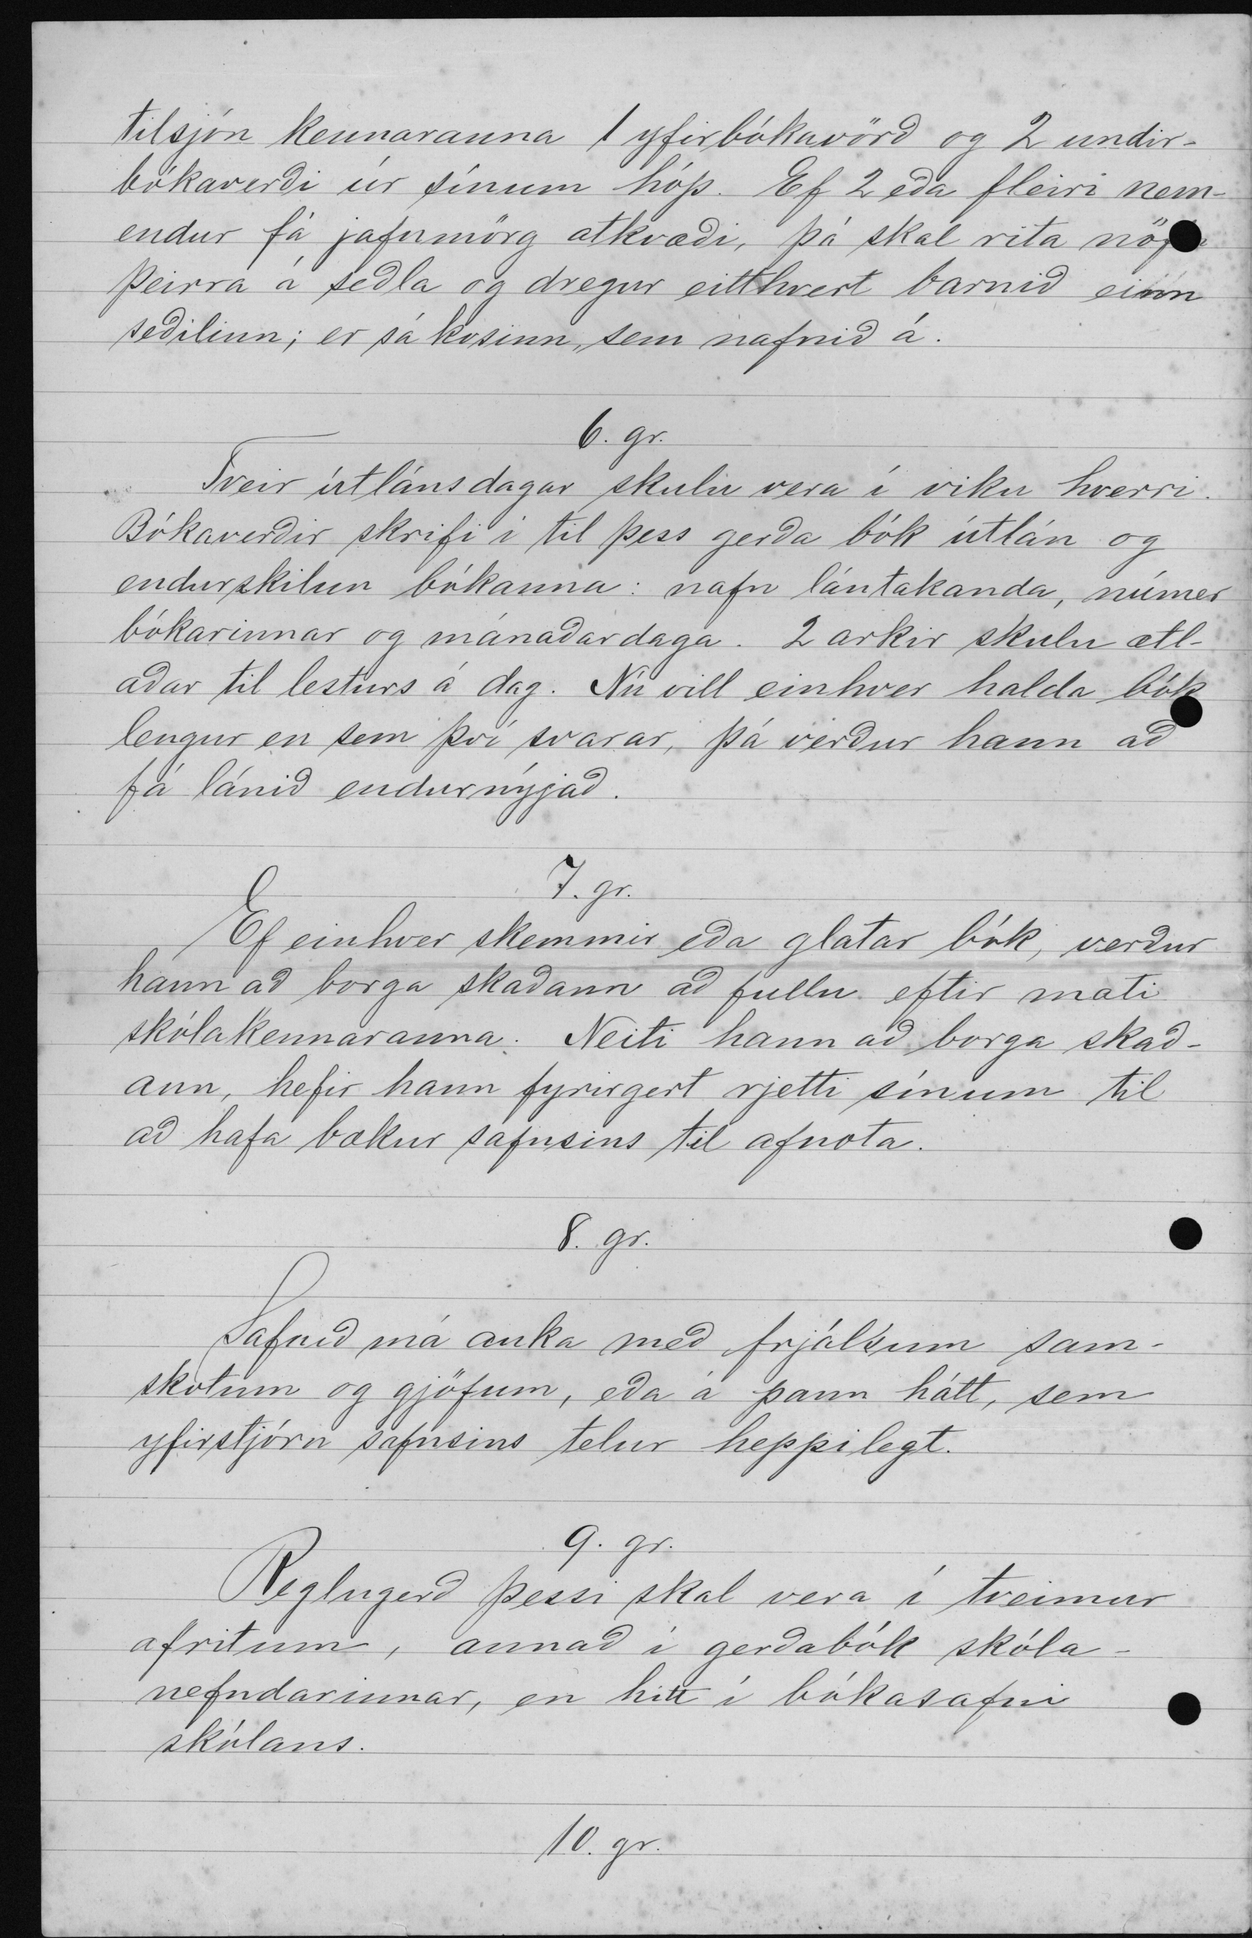 tilsjón kennaranna 1 yfirbókavörð og 2 undir-
bókaverði úr sínum hóp. Ef 2 eða fleiri nem-
endur fá jafnmörg atkvæði, þá skal rita
þeirra á seðla og dregur eitthvert barnið einn
seðilinn; er sá kosinn, sem nafnið á.
6. gr.
Tveir útlánsdagar skulu vera í viku hverri.
Bókaverðir skrifi í til þess gerða bók útlán og
endurskilun bókanna: nafn lántakanda, númer
bókarinnar og mánaðardaga. 2 arkir skulu ætl-
aðar til lesturs á dag. Nú vill einhver halda bók
lengur en sem því svarar, þá verður hann að
fá lánið endurnýjað.
7. gr.
Ef einhver skemmir eða glatar bók, verður
hann að borga skaðann að fullu eftir mati
skólakennaranna. Neiti hann að borga skað-
ann, hefir hann fyrirgert rjetti sínum til
að hafa bækur safnsins til afnota.
8. gr.
Safnið má auka með frjálsum sam-
skotum og gjöfum, eða á þann hátt, sem
yfirstjórn safnsins telur heppilegt.
9. gr.
Reglugerð þessi skal vera í tveimur
afritum, annað í gerðabók skóla-
nefndarinnar, en hitt í bókasafni
skólans.
10. gr.